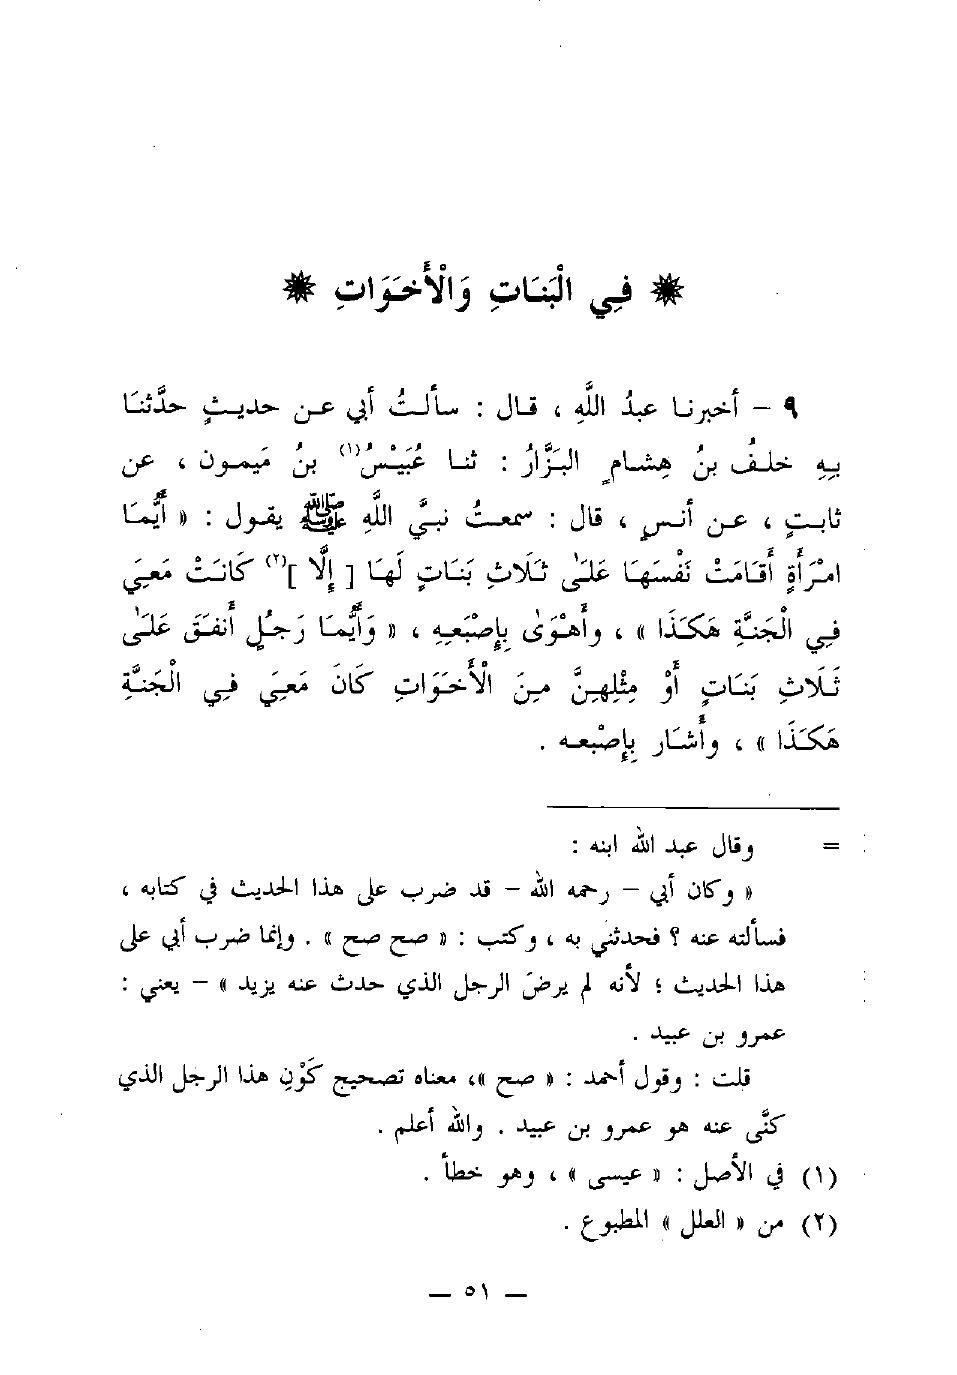 ❋ فِي الْبَنَاتِ وَالْأَخَوَاتِ ❋
٩ – أخبرنا عبدُ اللَّهِ ، قال : سألتُ أبي عن حديثٍ حدَّثنَا
بِهِ خلفُ بنُ هِشامٍ البَزَّارُ : ثنا عُبَيْسُ(١) بنُ مَيمون ، عن
ثابتٍ ، عن أنسٍ ، قال : سمعتُ نبيَّ اللَّهِ ﷺ يقول : « أَيُّمَا
امْرَأَةٍ أَقَامَتْ نَفْسَهَا عَلَىٰ ثَلَاثِ بَنَاتٍ لَهَا [ إِلَّا ](٢) كَانَتْ مَعِيَ
فِي الْجَنَّةِ هَكَذَا » ، وأَهْوَىٰ بِإصْبَعِهِ ، « وَأَيُّمَا رَجُلٍ أَنفَقَ عَلَىٰ
ثَلَاثِ بَنَاتٍ أَوْ مِثْلِهِنَّ مِنَ الْأَخَوَاتِ كَانَ مَعِيَ فِي الْجَنَّةِ
هَكَذَا » ، وأَشار بِإصْبعه .
= وقال عبد الله ابنه :
« وكان أبي – رحمه الله – قد ضرب على هذا الحديث في كتابه ،
فسألته عنه ؟ فحدثني به ، وكتب : « صح صح » . وإنما ضرب أبي على
هذا الحديث ؛ لأنه لم يرضَ الرجل الذي حدث عنه يزيد » – يعني :
عمرو بن عبيد .
قلت : وقول أحمد : « صح »، معناه تصحيح كَوْنِ هذا الرجل الذي
كنَّى عنه هو عمرو بن عبيد . والله أعلم .
(١) في الأصل : « عيسى » ، وهو خطأ .
(٢) من « العلل » المطبوع .
— ٥١ —